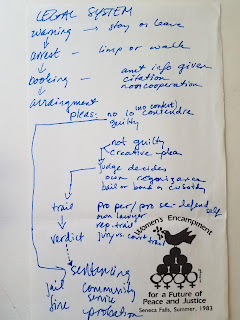 LEGAL SYSTEM
warning → stay or leave
arrest - limp or walk
booking - amt info given
citation
noncooperation
arraignment
(no contest)
pleas: no lo contendre
guilty
not guilty
creative plea
judge decides
own recognizance
bail or bond or custody
trail
pro per/pro se-defend self
own lawyer
rep. trail
verdict
jury vs. court trail
sentencing
jail
community
service
fine
probation
Women's Encampment
for a Future of
Peace and Justice
Seneca Falls, Summer, 1983